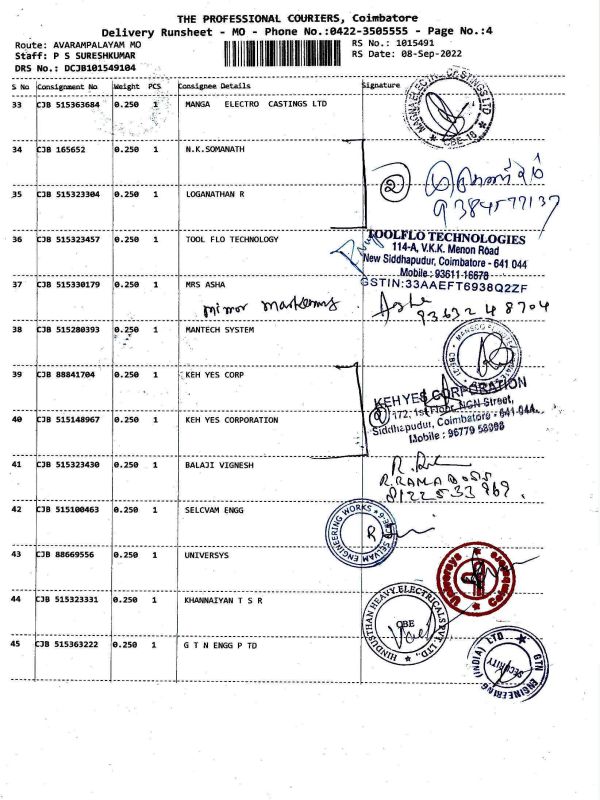 THE PROFESSIONAL COURIERS, Coimbatore
Delivery Runsheet - MO - Phone No.:0422-3505555 - Page No.:4
Route: AVARAMPALAYAM MO RS No.: 1015491
Staff: P S SURESHKUMAR RS Date: 08-Sep-2022
DRS No.: DCJB101549104
S No Consignment No Weight PCS Consignee Details Signature
33 CJB 515363684 0.250 1 MANGA ELECTRO CASTINGS LTD
MAGNA ELECTRO CASTINGS LTD
CBE-18
34 CJB 165652 0.250 1 N.K.SOMANATH
35 CJB 515323304 0.250 1 LOGANATHAN R
2
9384577137
36 CJB 515323457 0.250 1 TOOL FLO TECHNOLOGY
TOOLFLO TECHNOLOGIES
114-A, V.K.K. Menon Road
New Siddhapudur, Coimbatore - 641 044
Mobile : 93611 16678
GSTIN:33AAEFT6938Q2ZF
37 CJB 515330179 0.250 1 MRS ASHA
Asha
93632 48704
38 CJB 515280393 0.250 1 MANTECH SYSTEM
39 CJB 88841704 0.250 1 KEH YES CORP
40 CJB 515148967 0.250 1 KEH YES CORPORATION
KEHYES CORPORATION
172, 1st Floor, NGN Street,
Siddhapudur, Coimbatore - 641 044.
Mobile : 96779 58998
2
41 CJB 515323430 0.250 1 BALAJI VIGNESH
8122533969.
42 CJB 515100463 0.250 1 SELCVAM ENGG
SELVAM ENGINEERING WORKS
43 CJB 88669556 0.250 1 UNIVERSYS
Universys
Coimbatore
44 CJB 515323331 0.250 1 KHANNAIYAN T S R
HINDUSTHAN HEAVY ELECTRICALS PVT. LTD.,
CBE
45 CJB 515363222 0.250 1 G T N ENGG P TD
GTN ENGINEERING (INDIA) LTD
SECURITY